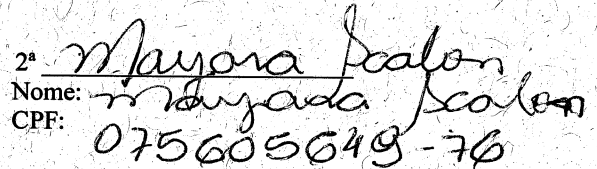 2ª Mayara Scalon
Nome: Mayara Scalon
CPF: 075605649-76